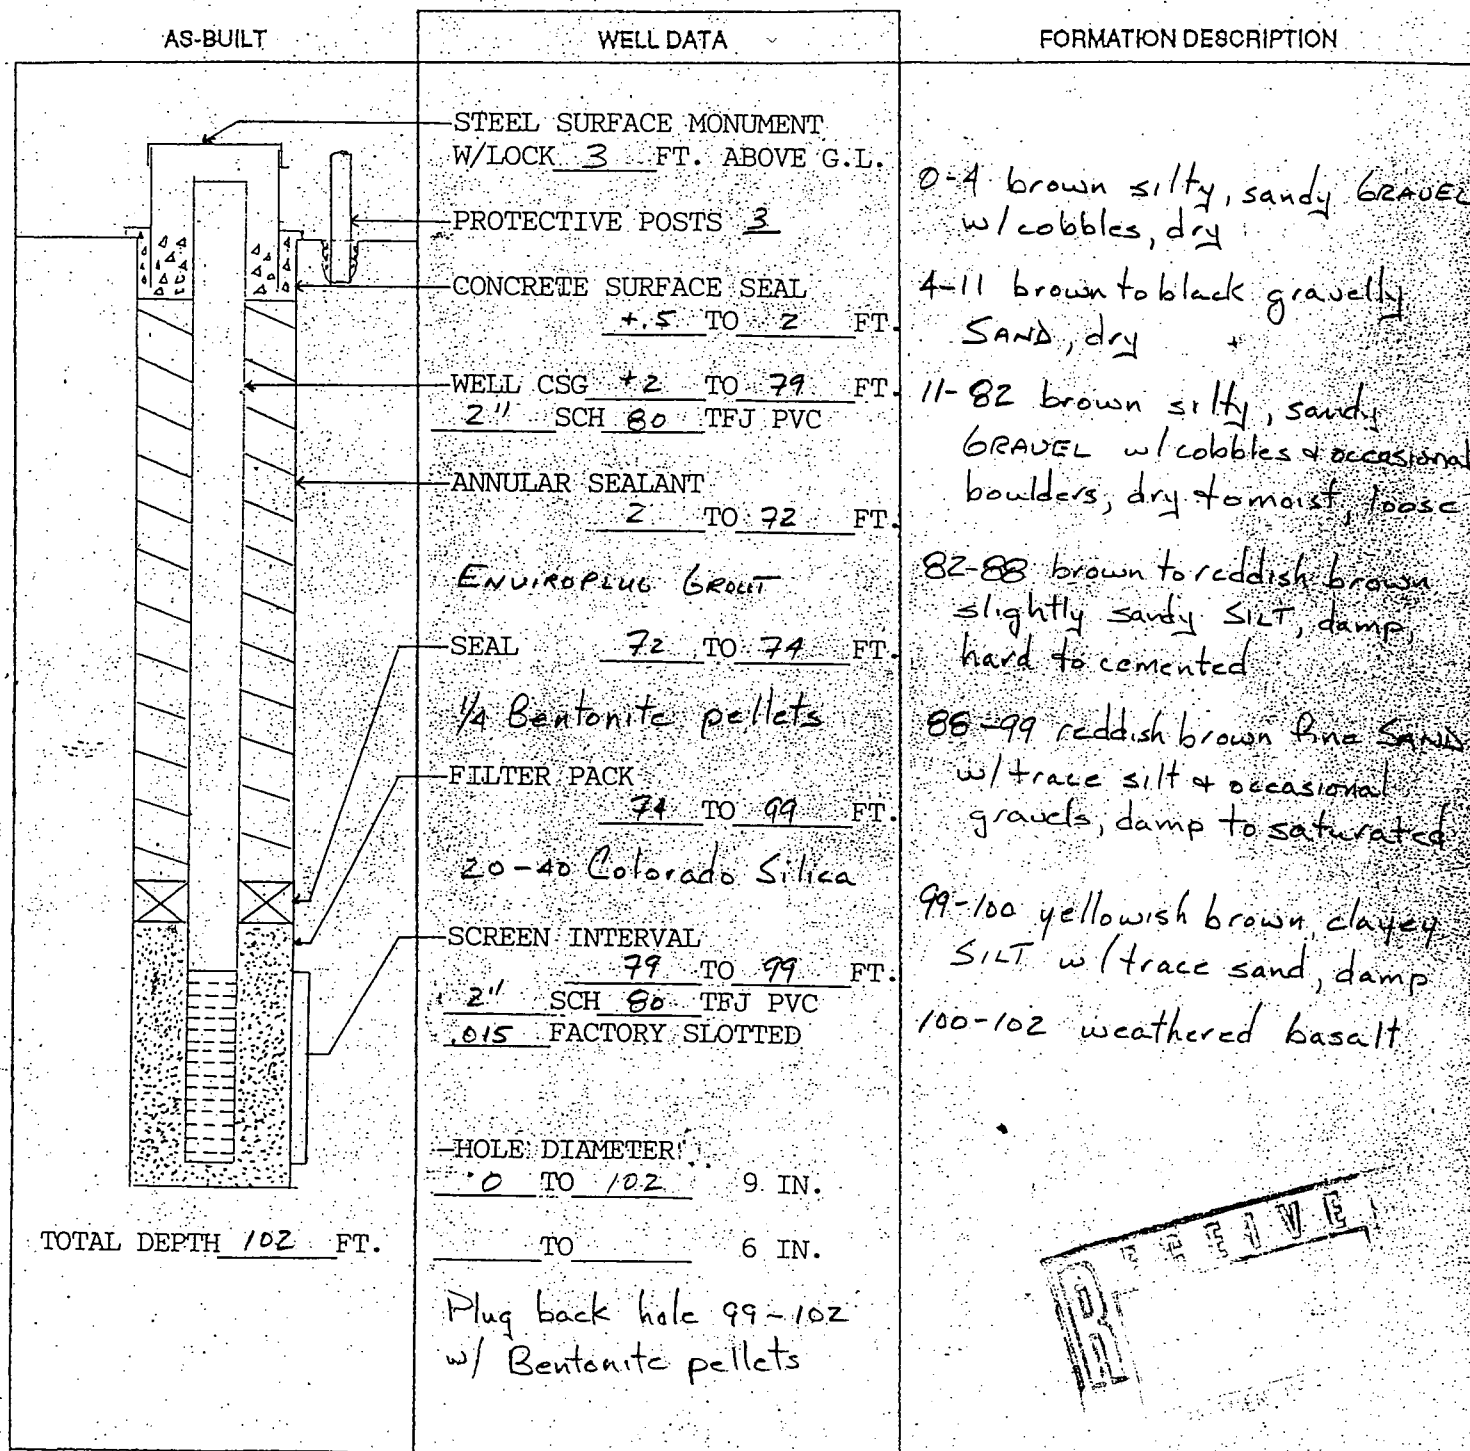 AS-BUILT
WELL DATA
FORMATION DESCRIPTION
STEEL SURFACE MONUMENT
W/LOCK 3 FT. ABOVE G.L.
PROTECTIVE POSTS 3
CONCRETE SURFACE SEAL
+.5 TO 2 FT.
WELL CSG +2 TO 79 FT.
2" SCH 80 TFJ PVC
ANNULAR SEALANT
2 TO 72 FT.
ENVIROPLUG GROUT
SEAL 72 TO 74 FT.
1/4 Bentonite pellets
FILTER PACK
74 TO 99 FT.
20-40 Colorado Silica
SCREEN INTERVAL
79 TO 99 FT.
2" SCH 80 TFJ PVC
.015 FACTORY SLOTTED
HOLE DIAMETER
0 TO 102 9 IN.
TO 6 IN.
Plug back hole 99-102
w/ Bentonite pellets
TOTAL DEPTH 102 FT.
0-4 brown silty, sandy GRAVEL
w/cobbles, dry
4-11 brown to black gravelly
SAND, dry
11-82 brown silty, sandy
GRAVEL w/cobbles & occasional
boulders, dry to moist, loose
82-88 brown to reddish brown
slightly sandy SILT, damp,
hard to cemented
88-99 reddish brown fine SAND
w/trace silt & occasional
gravels, damp to saturated
99-100 yellowish brown, clayey
SILT w/trace sand, damp
100-102 weathered basalt